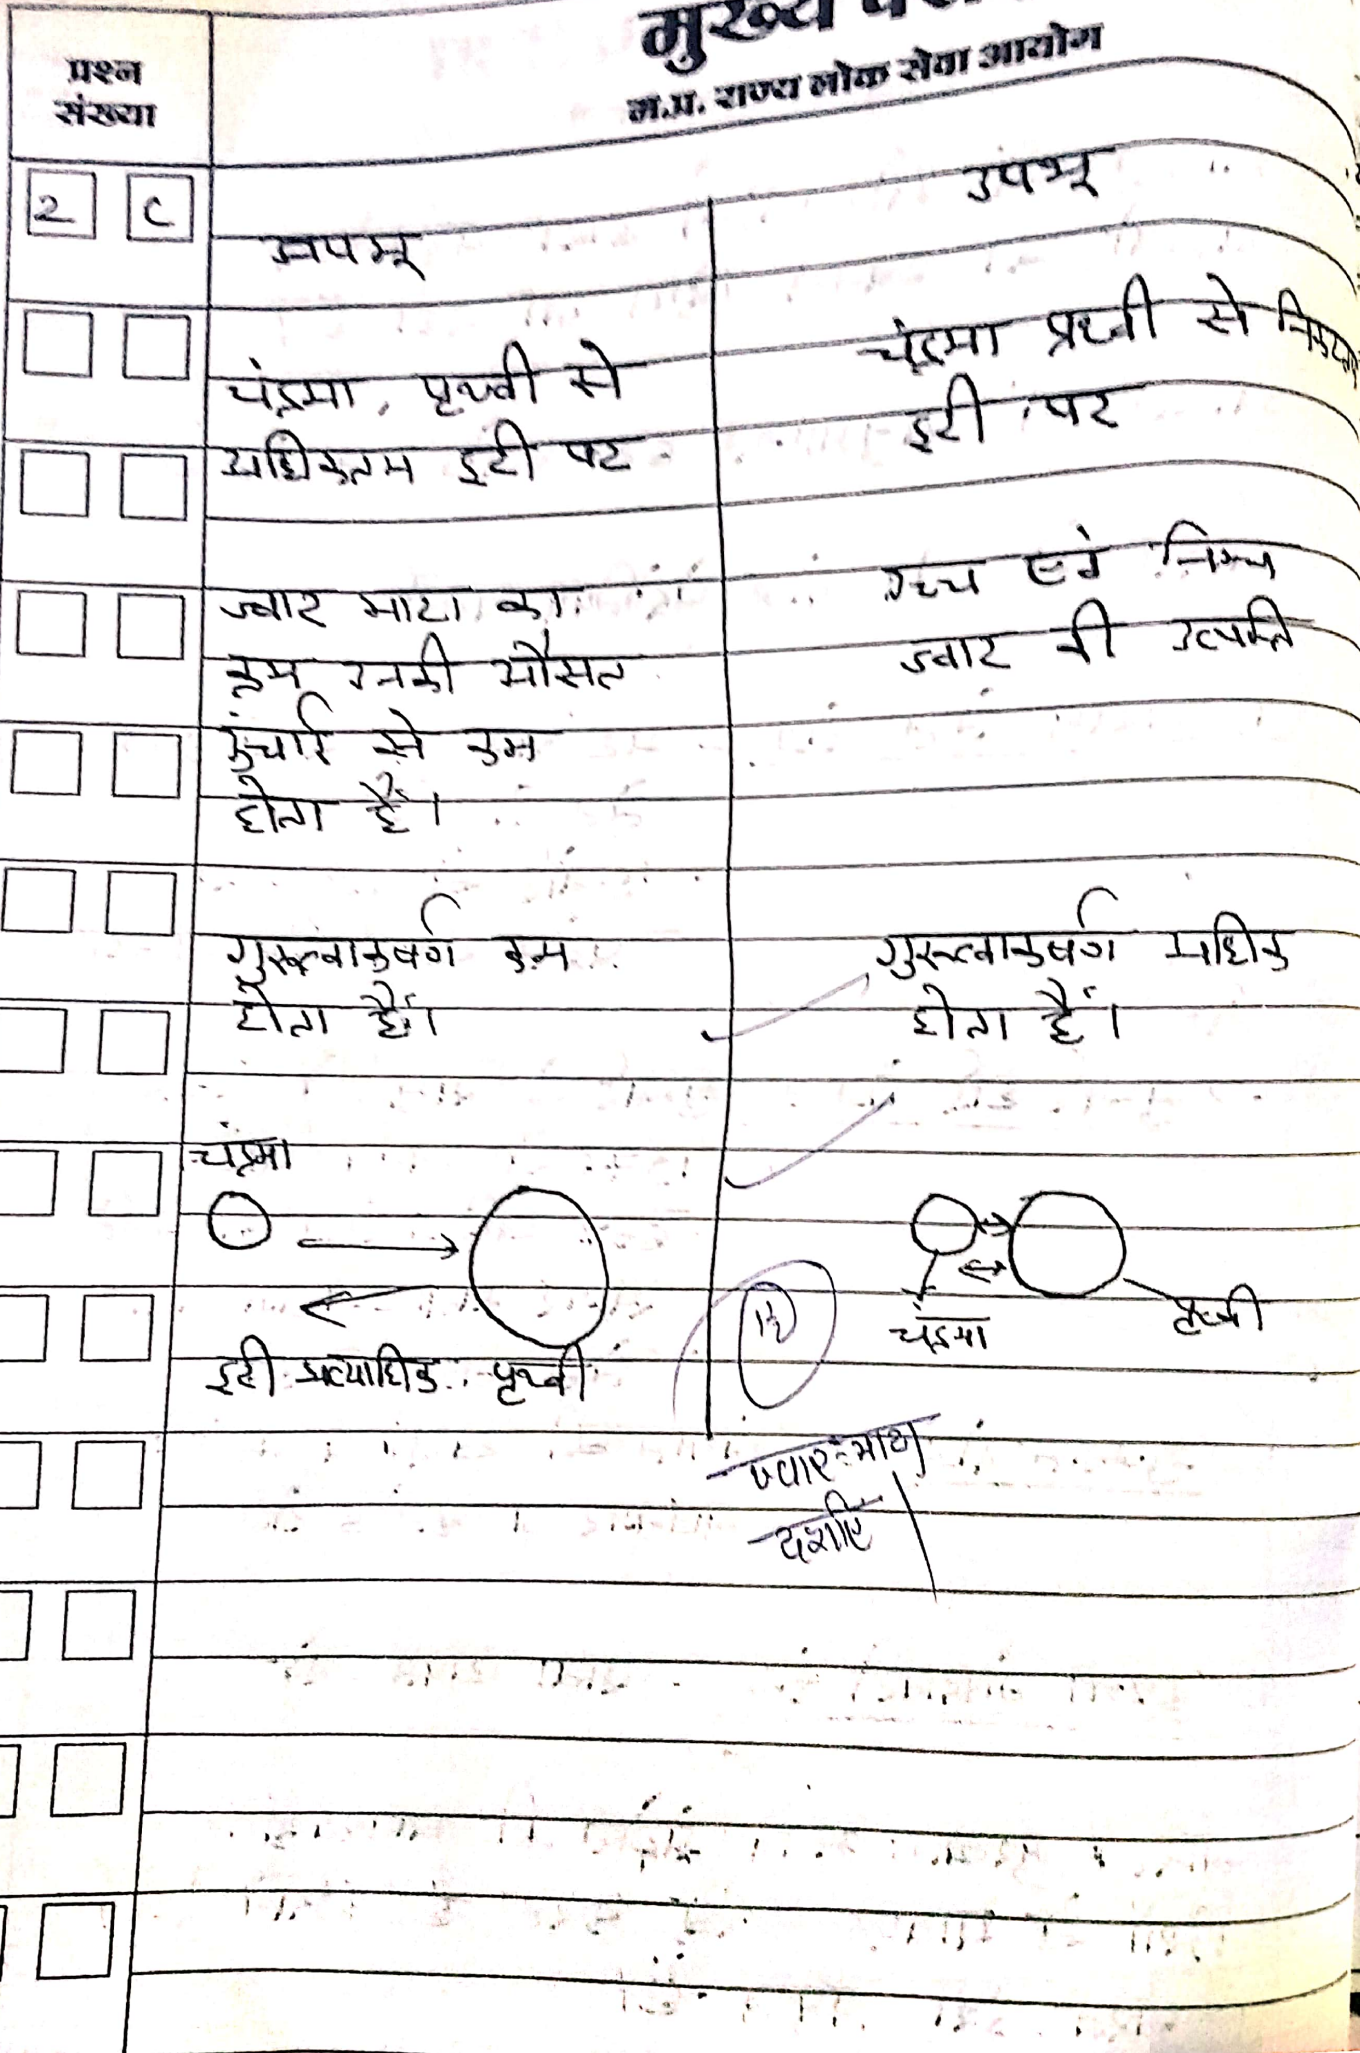 मुख्य
म.प्र. राज्य लोक सेवा आयोग
प्रश्न
संख्या
2 C
अपभू
उपभू
चंद्रमा, पृथ्वी से
अधिकतम दूरी पर
चंद्रमा प्रथ्वी से निकटतम
दूरी पर
ज्वार भाटा का
क्रम उनकी औसत
ऊंचाई से कम
होता है।
उच्च एवं निम्न
ज्वार की उत्पत्ति
गुरूत्वाकर्षण कम
होता हैं।
गुरूत्वाकर्षण अधिक
होता हैं।
चंद्रमा
दूरी अत्याधिक पृथ्वी
चंद्रमा
पृथ्वी
1½
ज्वार-भाटा
दर्शाए